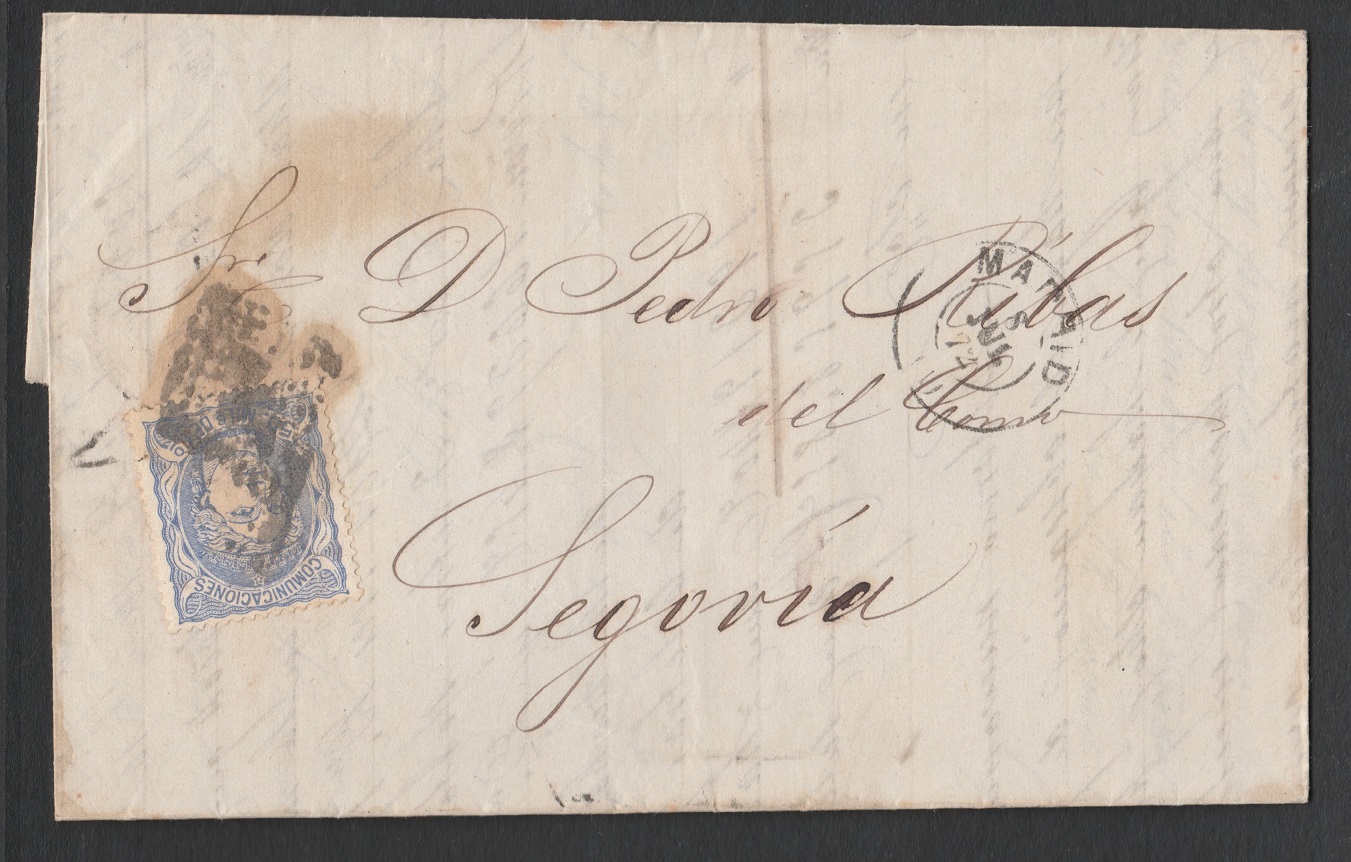 Sr. D Pedro Ribas
del Como
Segovia
MADRID
8
JUL
COMUNICACIONES